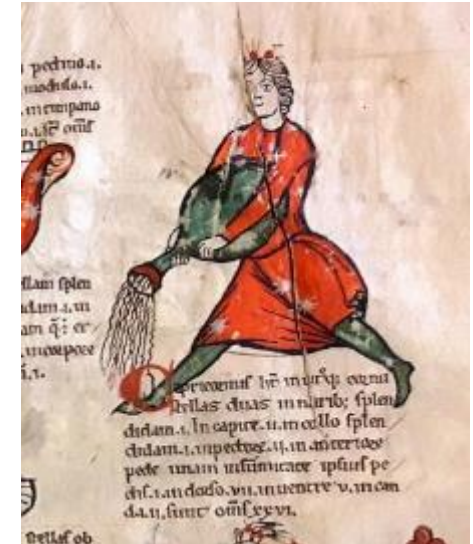 modulo.i.
in timpano
omīs
llam splen
didam.i. in
in corpore
.i.
Capricornus hr̄ in utq; cornu
stellas duas in narib; splen
didam.i. In capite.ii. in collo splen
didam.i. in pectore.ii. in anteriore
pede unam in summitate ipsius pe
dis.i. in dorso.vii. in uentre v. in cau
da.ii. sunt omīs xxvi.
stellas ob